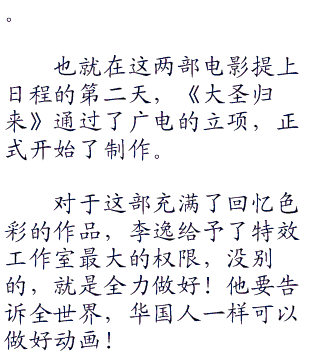 。
也就在这两部电影提上
日程的第二天，《大圣归
来》通过了广电的立项，正
式开始了制作。
对于这部充满了回忆色
彩的作品，李逸给予了特效
工作室最大的权限，没别
的，就是全力做好！他要告
诉全世界，华国人一样可以
做好动画！